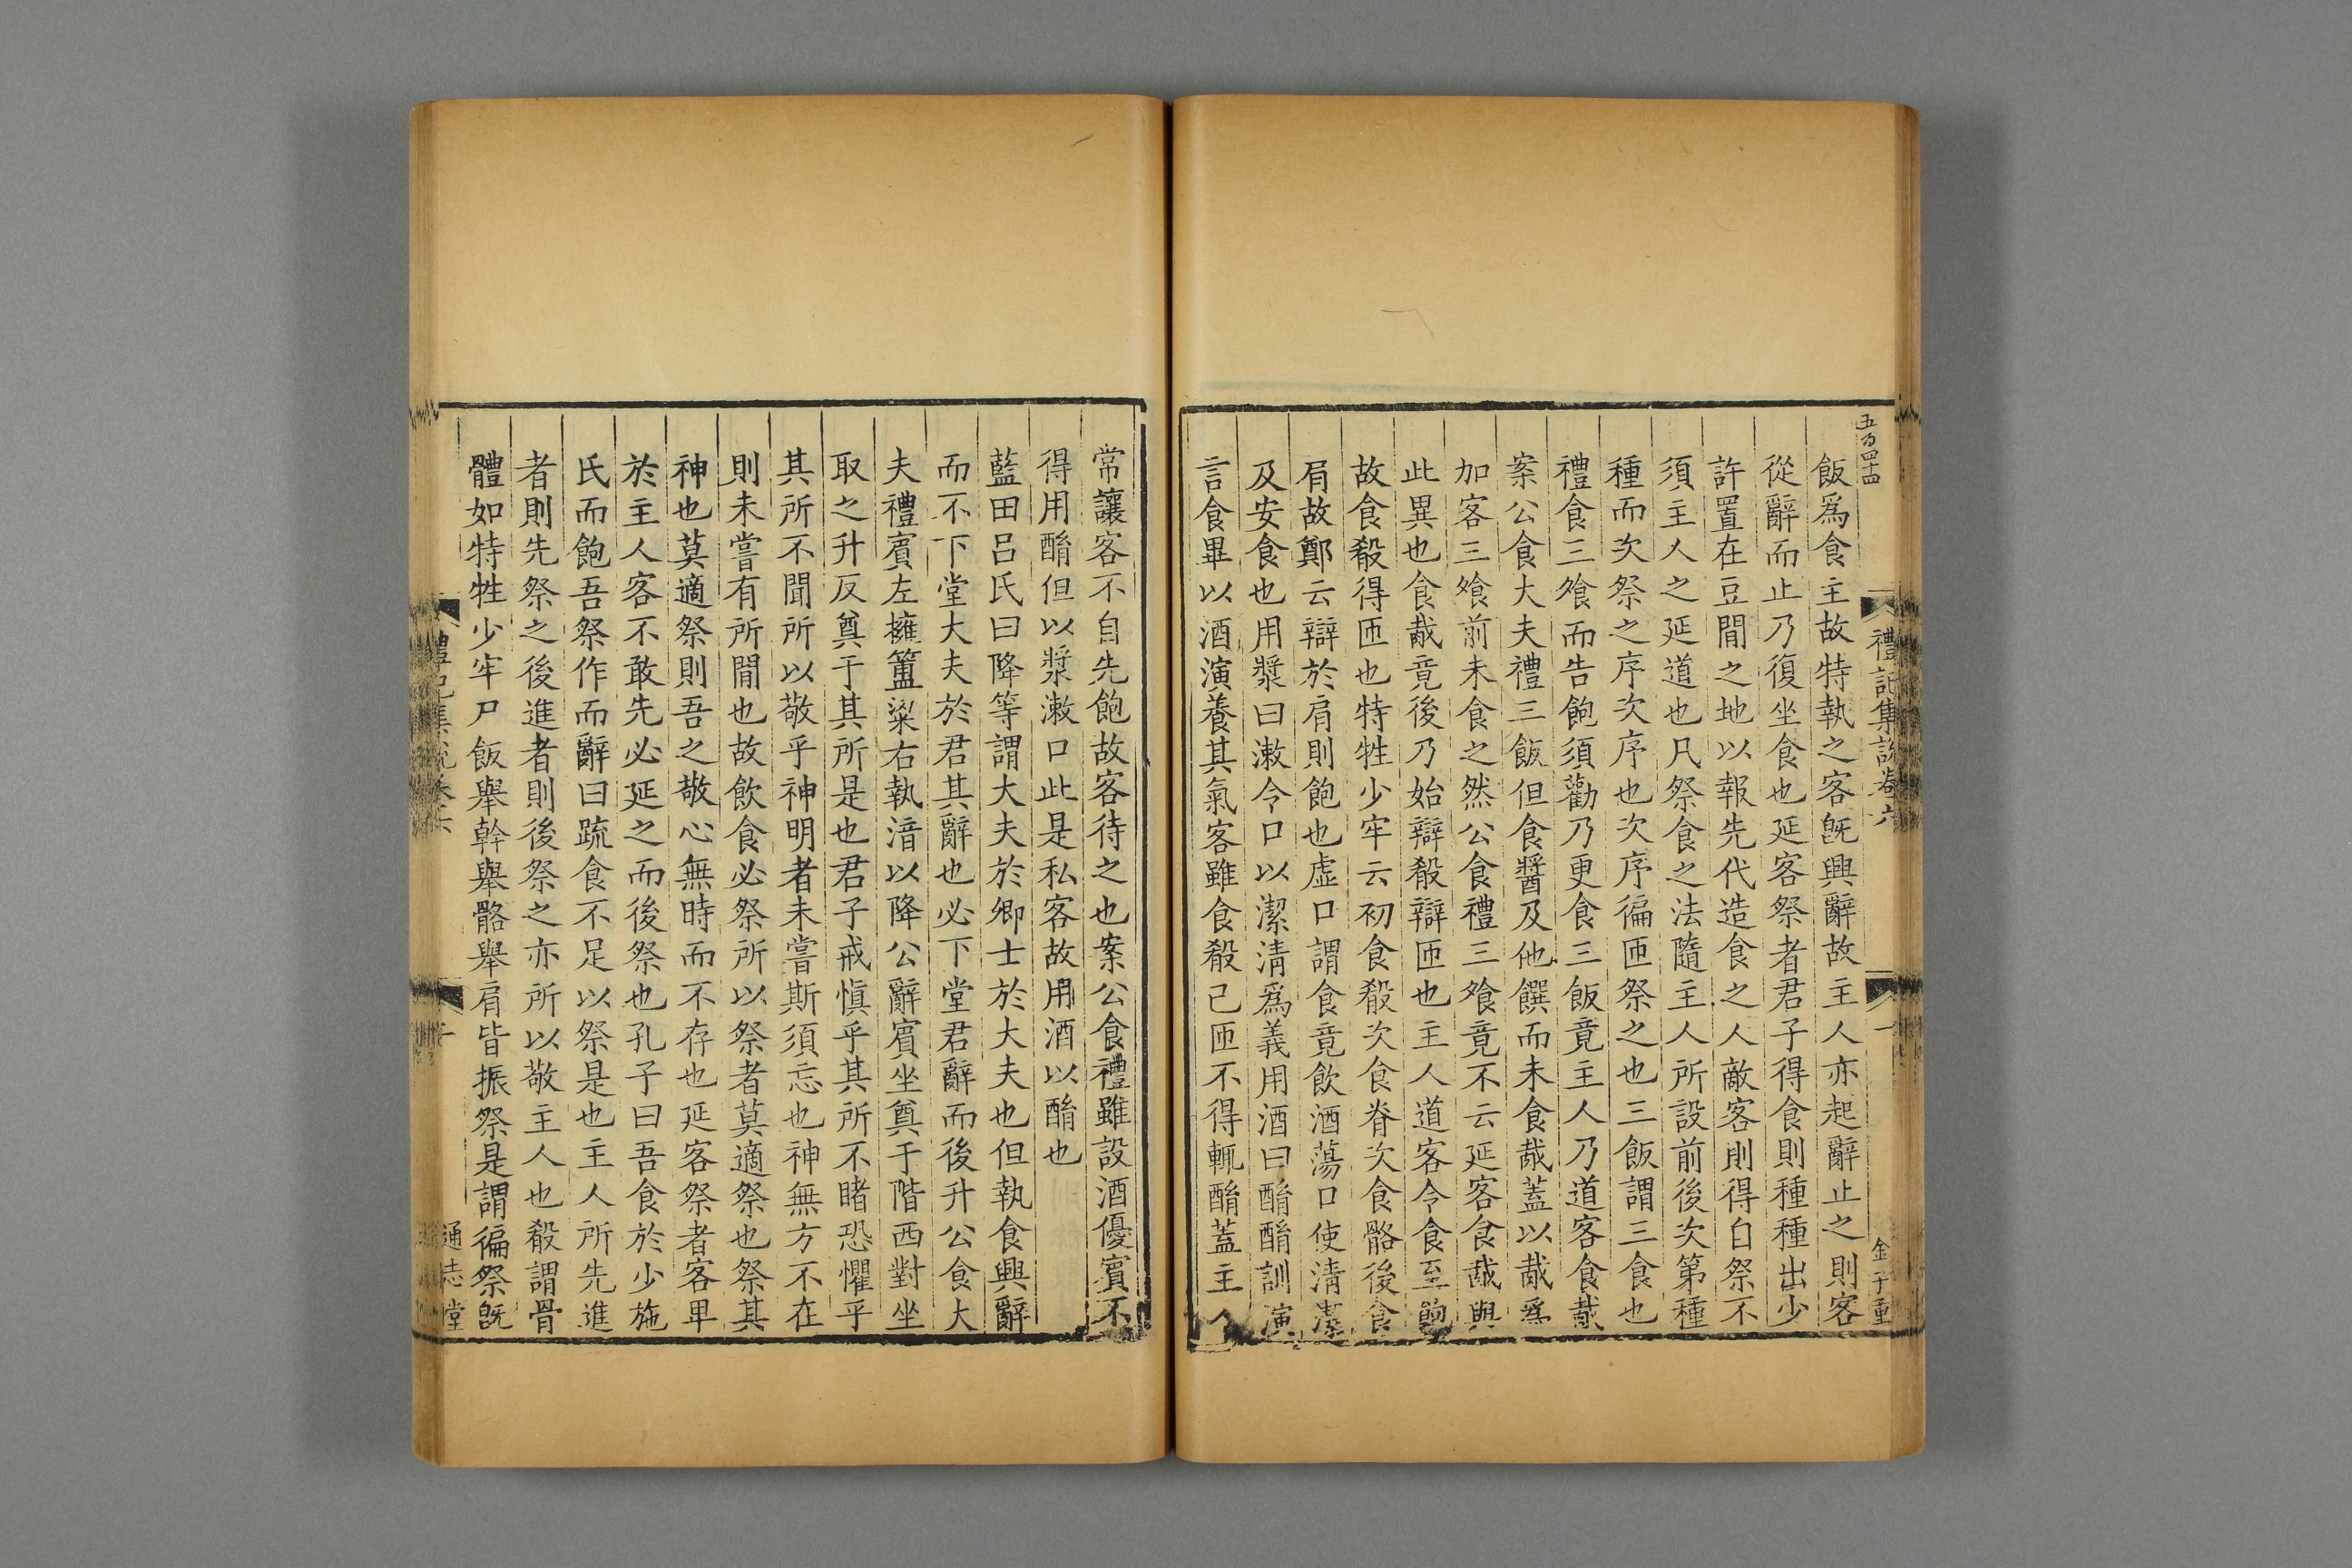 五百四十四
禮記集說卷六
一
金子重
飯爲食主故特執之客旣興辭故主人亦起辭止之則客
從辭而止乃復坐食也延客祭者君子得食則種種出少
許置在豆閒之地以報先代造食之人敵客則得自祭不
須主人之延道也凡祭食之法隨主人所設前後次第種
種而次祭之序次序也次序徧匝祭之也三飯謂三食也
禮食三飧而告飽須勸乃更食三飯竟主人乃道客食胾
案公食大夫禮三飯但食醬及他饌而未食胾蓋以胾爲
加客三飧前未食之然公食禮三飧竟不云延客食胾與
此異也食胾竟後乃始辯殽辯匝也主人道客令食至飽
故食殽得匝也特牲少牢云初食殽次食脊次食骼後食
肩故鄭云辯於肩則飽也虛口謂食竟飲酒蕩口使淸潔
及安食也用漿曰漱令口以潔淸爲義用酒曰酳酳訓演
言食畢以酒演養其氣客雖食殽已匝不得輒酳蓋主人
常讓客不自先飽故客待之也案公食禮雖設酒優賓不
得用酳但以漿漱口此是私客故用酒以酳也
藍田呂氏曰降等謂大夫於卿士於大夫也但執食興辭
而不下堂大夫於君其辭也必下堂君辭而後升公食大
夫禮賓左擁簠粱右執湆以降公辭賓坐奠于階西對坐
取之升反奠于其所是也君子戒愼乎其所不睹恐懼乎
其所不聞所以敬乎神明者未嘗斯須忘也神無方不在
則未嘗有所閒也故飲食必祭所以祭者莫適祭也祭其
神也莫適祭則吾之敬心無時而不存也延客祭者客卑
於主人客不敢先必延之而後祭也孔子曰吾食於少施
氏而飽吾祭作而辭曰疏食不足以祭是也主人所先進
者則先祭之後進者則後祭之亦所以敬主人也殽謂骨
體如特牲少牢尸飯舉幹舉骼舉肩皆振祭是謂徧祭旣
禮記集說卷六
通志堂